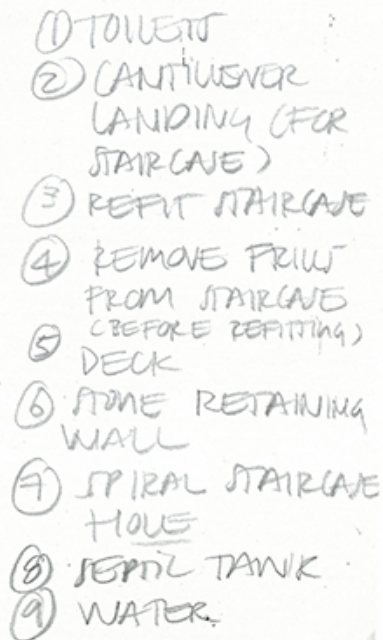 ① TOILETS
② CANTILLEVER
LANDING (FOR
STAIRCASE)
③ REFIT STAIRCASE
④ REMOVE FRILLS
FROM STAIRCASE
(BEFORE REFITTING)
⑤ DECK
⑥ STONE RETAINING
WALL
⑦ SPIRAL STAIRCASE
HOLE
⑧ SEPTIC TANK
⑨ WATER